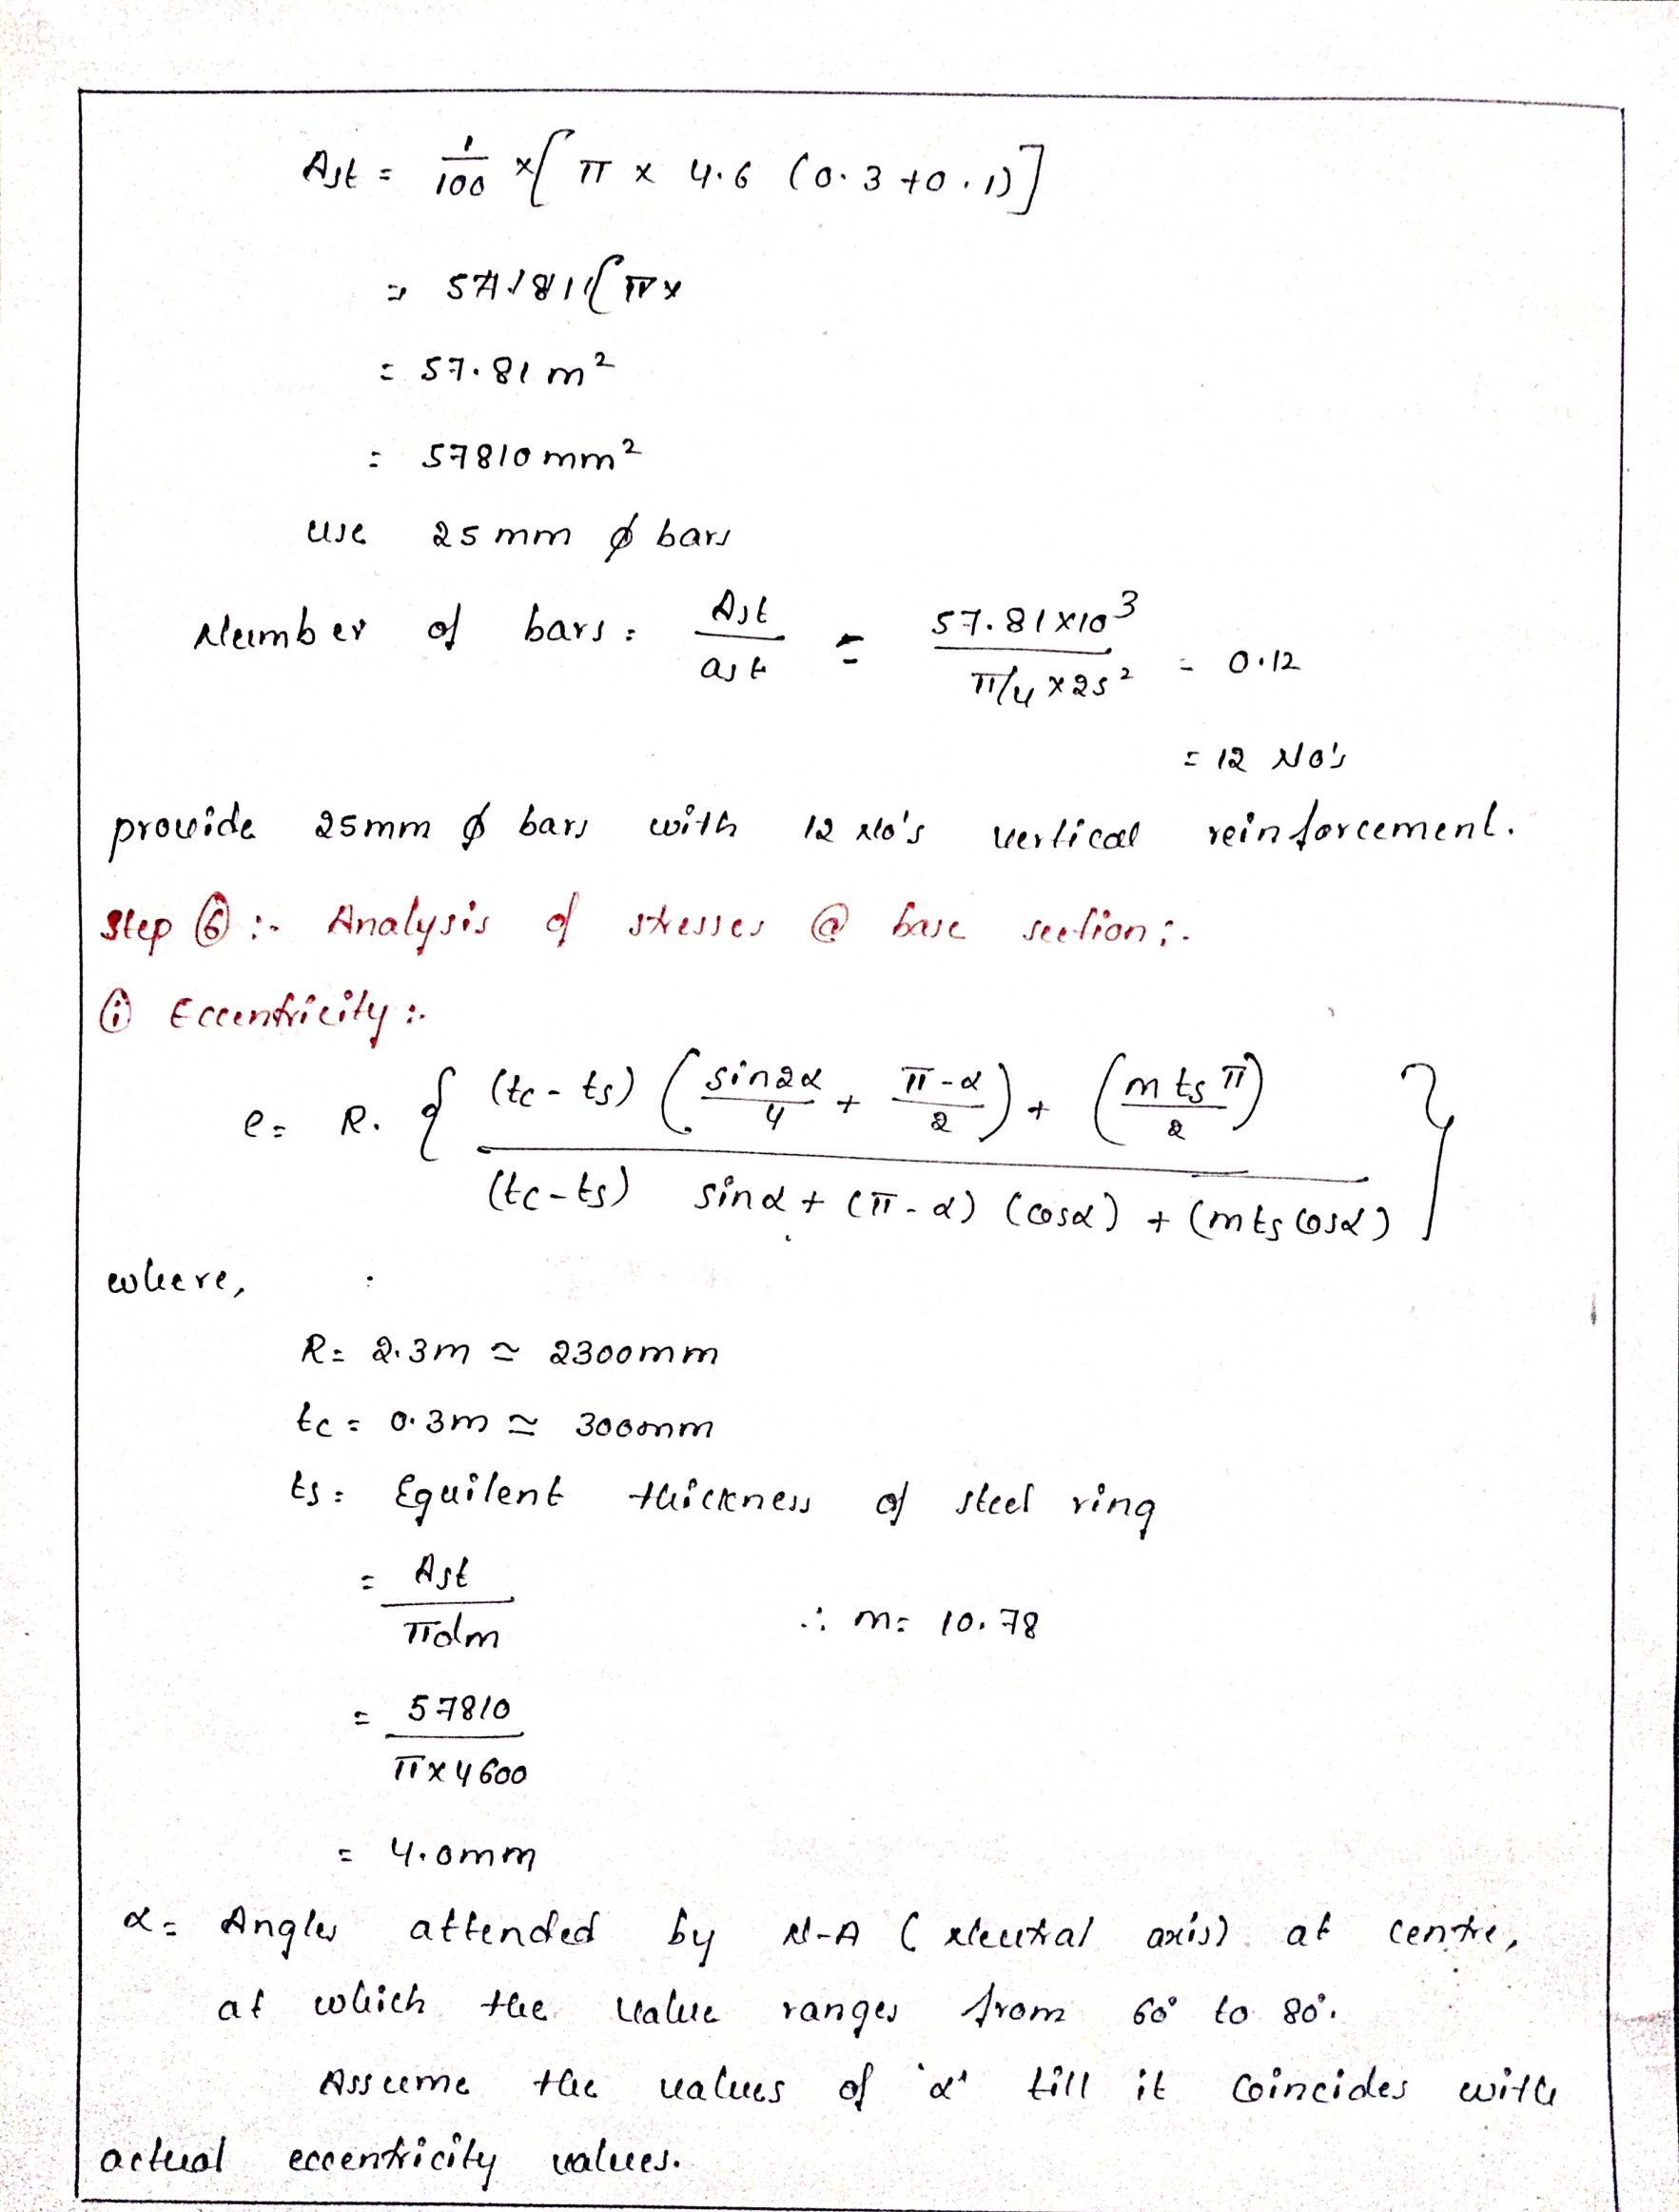 Ast = 1/100 × [π × 4.6 (0.3 + 0.1)]
= 57.81 m²
= 57810 mm²
use 25 mm ϕ bars
Number of bars = Ast/ast = 57.81×10³ / (π/4 × 25²) = 0.12
= 12 No's
provide 25mm ϕ bars with 12 No's vertical reinforcement.
Step ⑥ :- Analysis of stresses @ base section :-
ⓘ Eccentricity :-
e = R. { (tc - ts) (sin2α/4 + π-α/2) + (m ts π/2) / (tc - ts) sinα + (π - α) (cosα) + (m ts cosα) }
where,
R = 2.3m ≃ 2300mm
tc = 0.3m ≃ 300mm
ts = Equilent thickness of steel ring
= Ast/πdm ∴ m = 10.78
= 57810 / π×4600
= 4.0mm
α = Angles attended by N-A (Neutral axis) at centre,
at which the value ranges from 60° to 80°.
Assume the values of 'α' till it coincides with
actual eccentricity values.